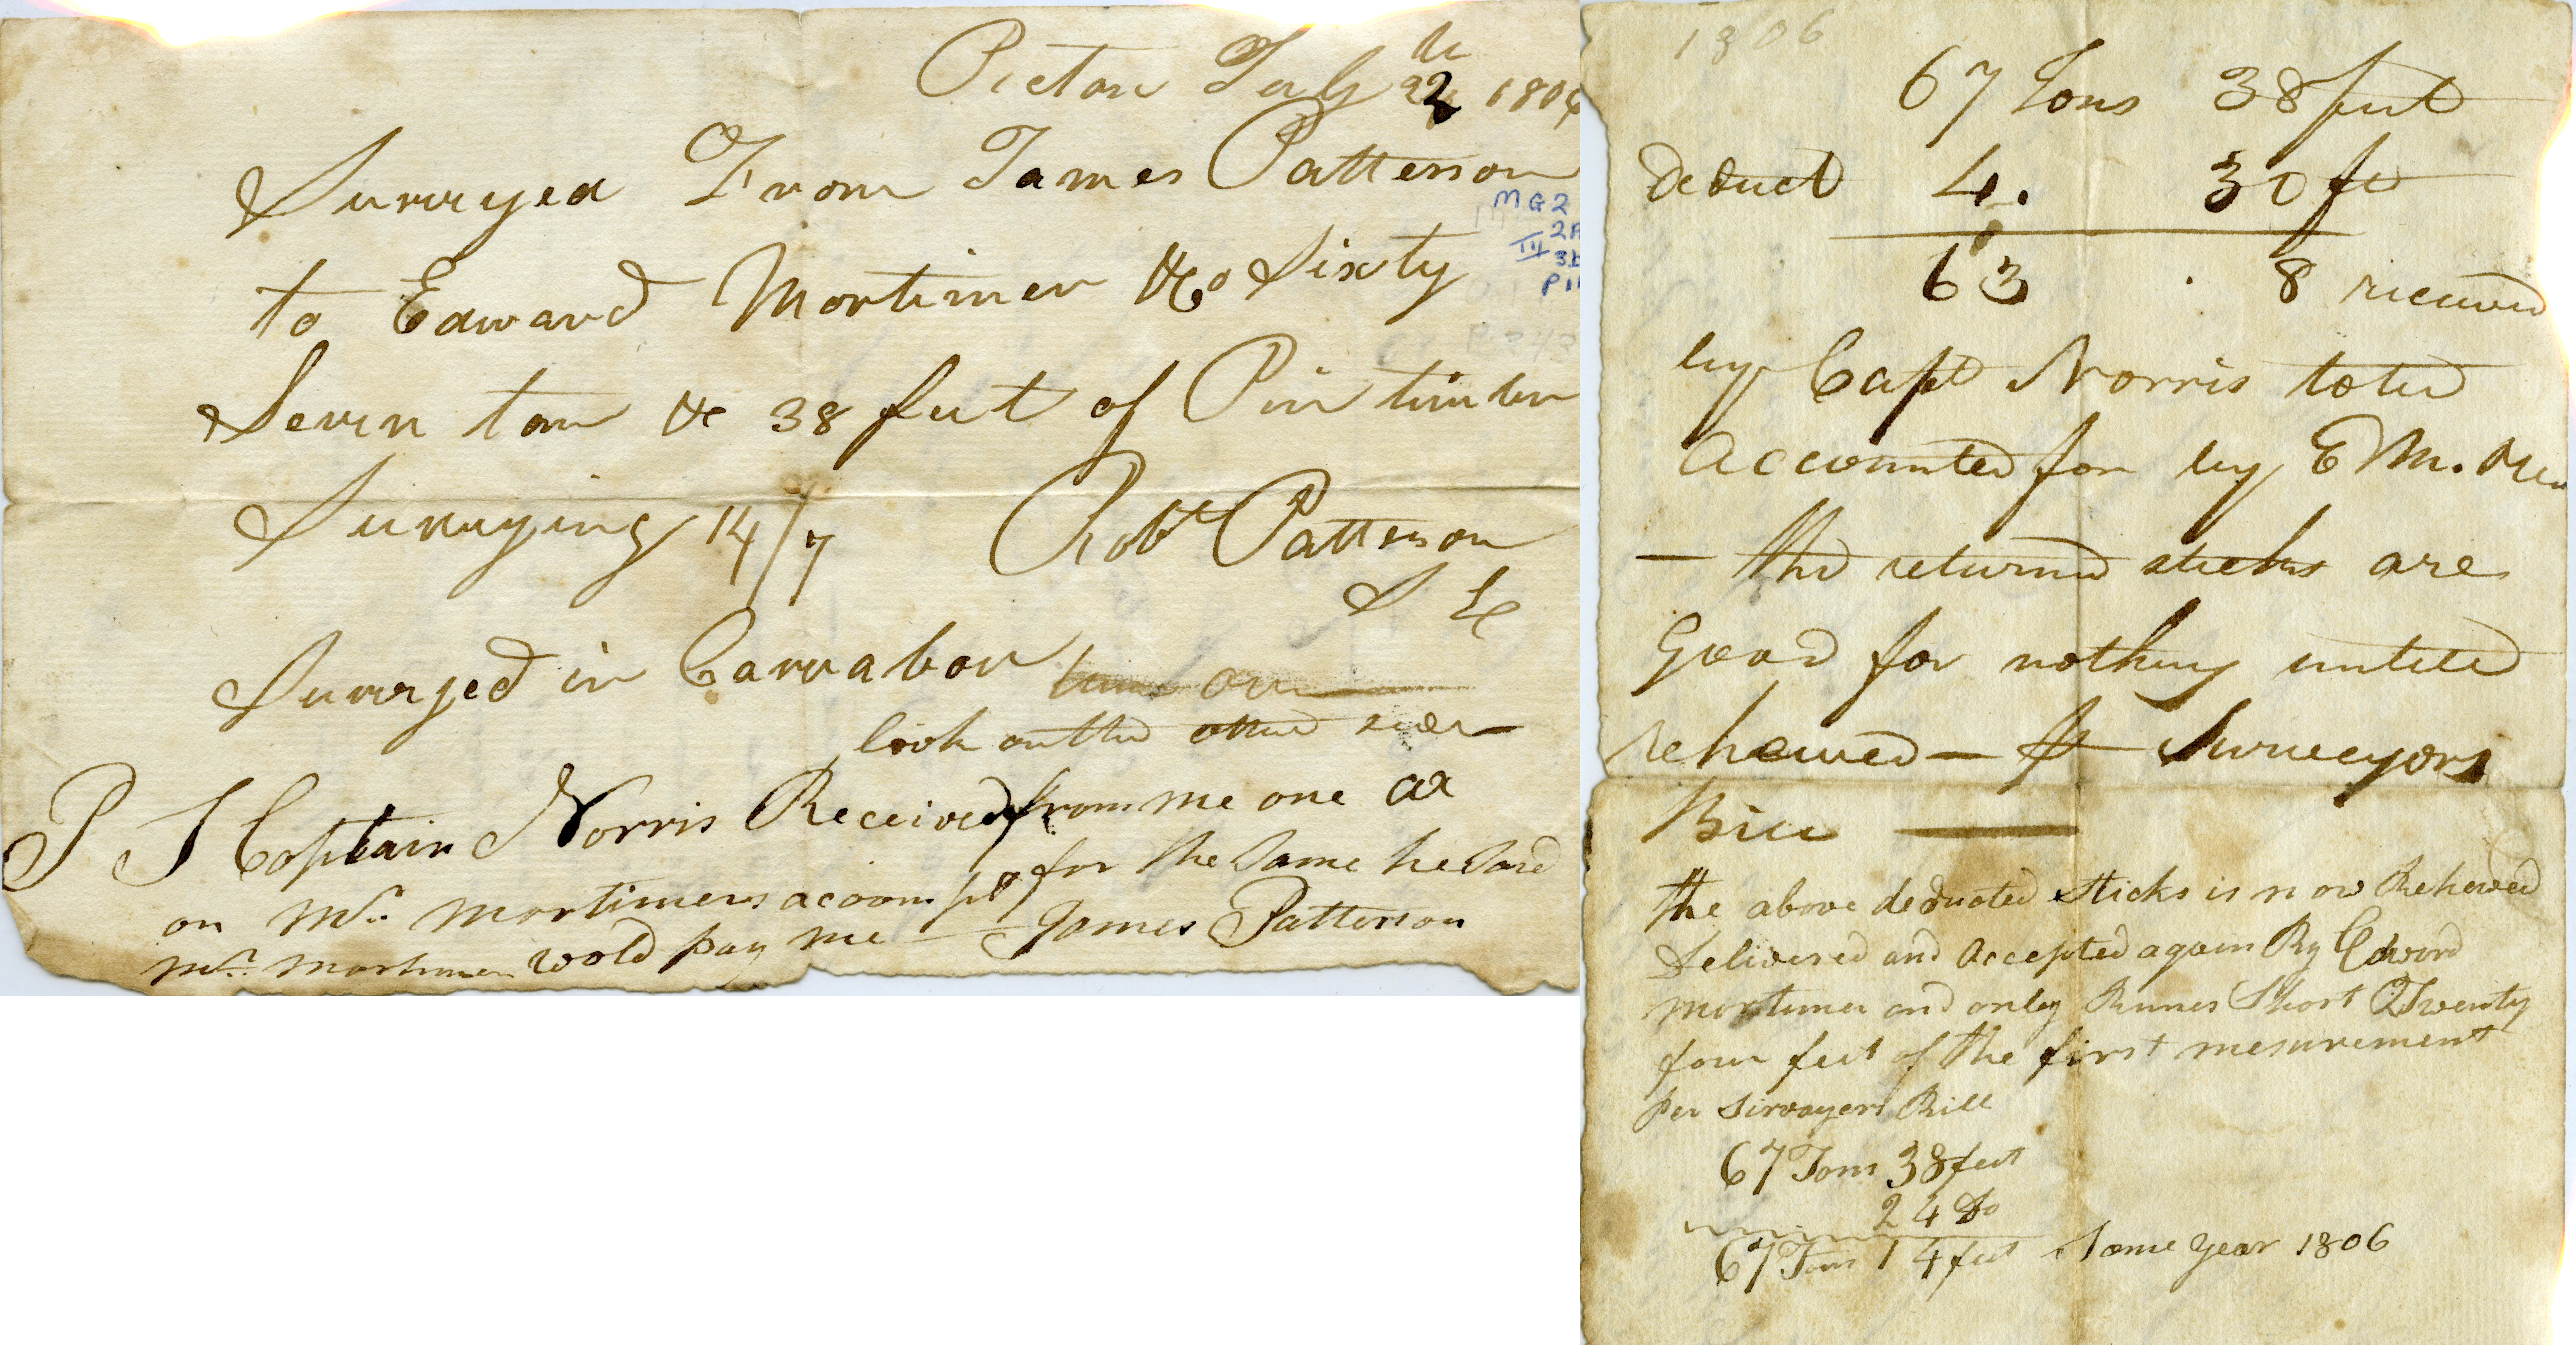 Pictou July 22 th 180
Survayed From James Patterson
MG2
to Edward Mortimer &Co Sixty
III
Seven ton & 38 feet of Pine timber
Survaying 14/7 Robt Patterson
Survayed in Carrabou
look on the other side
P S Captain Norris Received from me one ax
on Mr. Mortimers acoompt for the Same he Said
Mr. Mortimer wold pay me — James Patterson
1806
67 Tons 38 feet
deduct 4. 30 ft
63 . 8 received
by Capt Norris to be
Accounted for by E M.
— the returned sticks are
Good for nothing untill
rehewed — Surveyors
Bill —
the above deducted Sticks is now Rehewed
Delivered and Accepted again By Edward
Mortimer and only Runes Short Twenty
four feet of the first mesurement
per Sirvayers Bill
67 Tons 38 feet
24 Do
67 Tons 14 feet Same year 1806